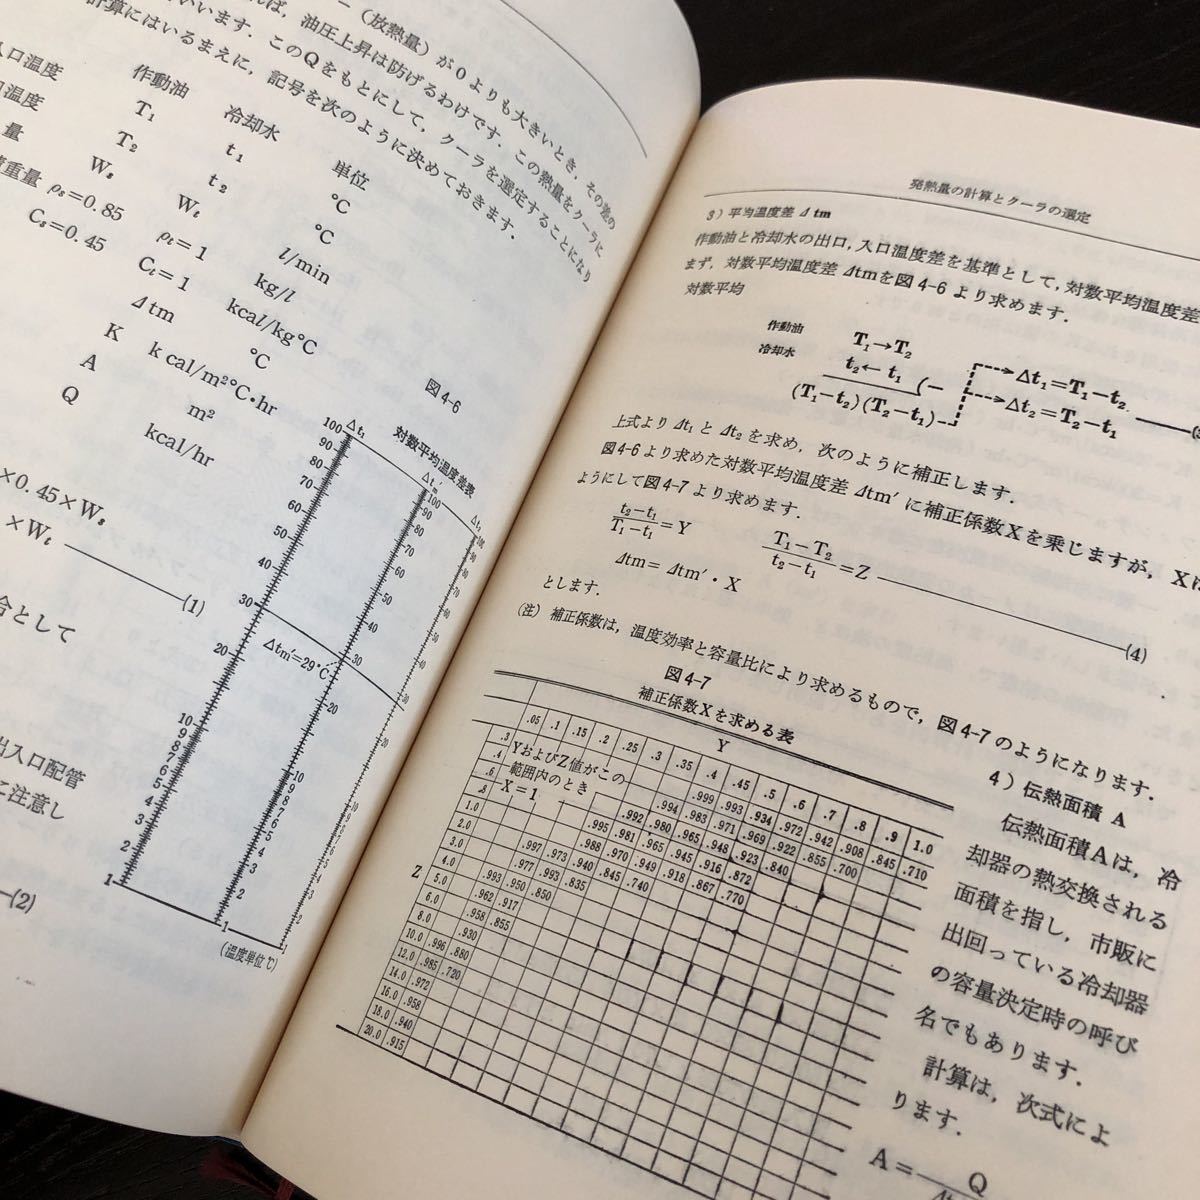 －（放熱量）が0よりも大きいとき，その差の
れば，油圧上昇は防げるわけです．この熱量をクーラに
いいます．このQをもとにして，クーラを選定することになり
計算にはいるまえに，記号を次のように決めておきます．
作動油 冷却水 単位
入口温度 T₁ t₁ ℃
口温度 T₂ t₂ ℃
量 Wₛ Wₜ l/min
重量 ρₛ=0.85 ρₜ=1 kg/l
Cₛ=0.45 Cₜ=1 kcal/kg℃
Δtm ℃
K k cal/m²℃・hr
A m²
Q kcal/hr
×0.45×Wₛ
×Wₜ
(1)
合として
出入口配管
に注意し
(2)
図4-6
対数平均温度差表
Δt₁
Δtm′
Δt₂
100
90
80
70
60
50
40
30
20
10
9
8
7
6
5
4
3
2
1
Δtm′=29℃
（温度単位℃）
発熱量の計算とクーラの選定
3）平均温度差 Δtm
作動油と冷却水の出口，入口温度差を基準として，対数平均温度差
まず，対数平均温度差Δtmを図4-6より求めます．
対数平均
作動油 T₁→T₂
冷却水 t₂←t₁ (−
(T₁−t₂)(T₂−t₁)
Δt₁=T₁−t₂
Δt₂=T₂−t₁
上式よりΔt₁とΔt₂を求め，次のように補正します．
図4-6より求めた対数平均温度差Δtm′に補正係数Xを乗じますが，Xは
ようにして図4-7より求めます．
t₂−t₁/T₁−t₁=Y T₁−T₂/t₂−t₁=Z
Δtm=Δtm′・X
(4)
とします．
（注）補正係数は，温度効率と容量比により求めるもので，図4-7のようになります．
図4-7
補正係数Xを求める表
Y
.05 .1 .15 .2 .25 .3 .35 .4 .45 .5 .6 .7 .8 .9 1.0
YおよびZ値がこの
範囲内のとき
X=1
Z
.3 .999 .993 .934 .972 .942 .908 .845 .710
.4 .994 .983 .971 .969 .922 .855 .700
.6 .992 .980 .965 .948 .923 .840
.8 .995 .981 .965 .945 .916 .872 .770
1.0 .988 .970 .949 .918 .867
2.0 .997 .973 .940 .845 .740
3.0 .977 .993 .835
4.0 .993 .950 .850
5.0 .962 .917
6.0 .958 .855
8.0 .930
10.0 .996 .880
12.0 .985 .720
14.0 .972
16.0 .958
18.0 .940
20.0 .915
4）伝熱面積 A
伝熱面積Aは，冷
却器の熱交換される
面積を指し，市販に
出回っている冷却器
の容量決定時の呼び
名でもあります．
計算は，次式によ
ります．
A= Q